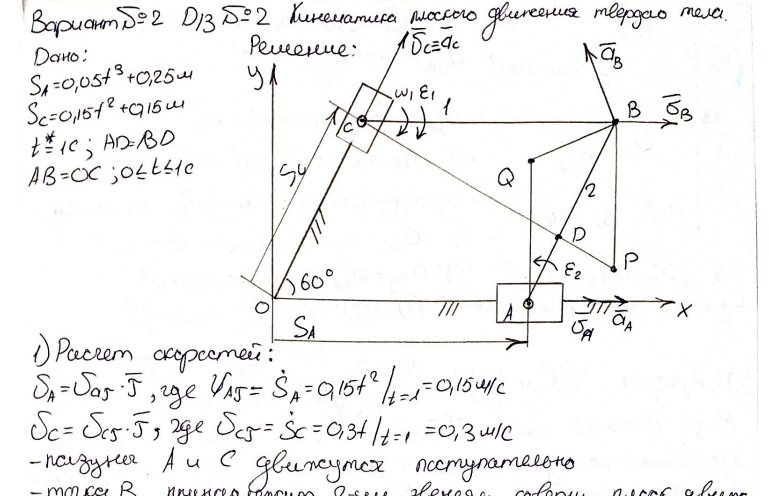 Вариант №2 D/З №2 Кинематика плоского движения твердого тела.
Дано:
S_A=0,05t³+0,25м
S_C=0,15t²+0,15м
t*=1c; AD=BD
AB=OC; 0≤t≤1c
Решение:
y
v̄_C≡ā_C
ā_B
C
ω₁ ε₁
1
B
v̄_B
Q
2
D
P
ε₂
60°
O
A
v̄_A
ā_A
x
S_A
1) Расчет скоростей:
v_A=v_Aτ·τ̄, где v_Aτ=Ṡ_A=0,15t²/t=1=0,15м/с
v_C=v_Cτ·τ̄, где v_Cτ=Ṡ_C=0,3t/t=1=0,3м/с
-ползуны A и C движутся поступательно
-точка B